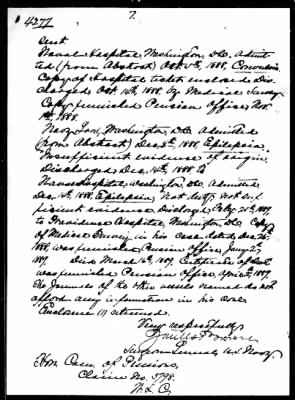 7.
4277
sent
Naval Hospital, Washington, D.C. Admitted
(from Abstract) Oct. 5th, 1888, Convulsions
Copy of Hospital ticket enclosed. Discharged
Oct. 10th, 1888, by Medical Survey
Copy furnished Pension Office, Nov.
1st, 1888.
Navy Yard, Washington, D.C. Admitted
(from Abstract) Dec. 8th, 1888, Epilepsia.
Insufficient evidence of origin.
Discharged Dec. 14th, 1888 to
Naval Hospital, Washington, D.C. Admitted
Dec. 14th, 1888, Epilepsia. Not duty. Insufficient
evidence. Discharged Feby. 20th, 1889,
to Providence Hospital, Washington, D.C. Copy
of Medical Survey in his case, dated Dec. 26th
1888, was furnished Pension Office, Jany. 2d
1889. Died March 16th, 1889. Certificate of death
was furnished Pension Office, April 5th, 1889.
The Journals of the other vessels named do not
afford any information in his case
Enclosure (1) returned.
Very respectfully
Surgeon General U.S. Navy
Hon. Com. of Pensions,
Claim No. 3798.